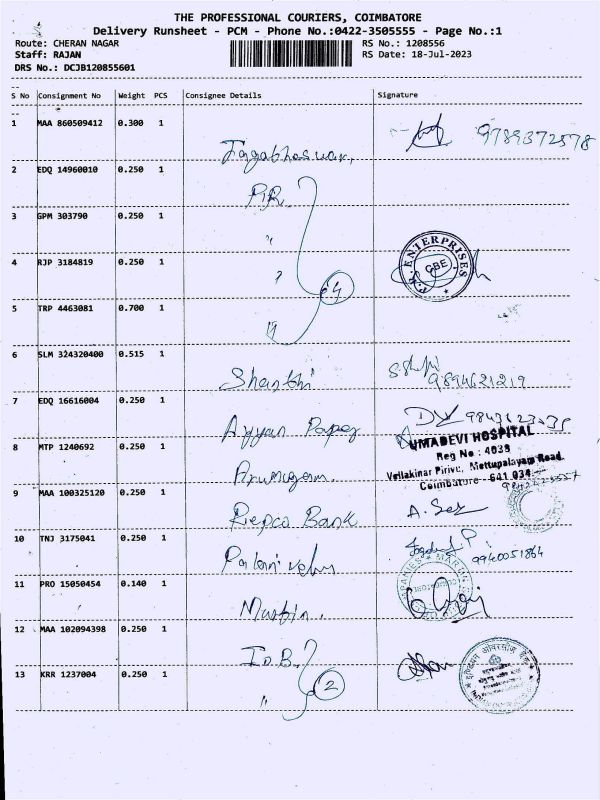 THE PROFESSIONAL COURIERS, COIMBATORE
Delivery Runsheet - PCM - Phone No.:0422-3505555 - Page No.:1
Route: CHERAN NAGAR RS No.: 1208556
Staff: RAJAN RS Date: 18-Jul-2023
DRS No.: DCJB120855601
S No Consignment No Weight PCS Consignee Details Signature
1 MAA 860509412 0.300 1 9789372578
2 EDQ 14960010 0.250 1 P.R.
3 GPM 303790 0.250 1 "
P.R. ENTERPRISES
CBE
4 RJP 3184819 0.250 1 " 4
5 TRP 4463081 0.700 1 "
6 SLM 324320400 0.515 1 Shanthi 9894621219
7 EDQ 16616004 0.250 1 Ayyan Paper
UMADEVI HOSPITAL
Reg No : 4039
Vellakinar Pirivu, Mettupalayam Road,
Coimbatore - 641 034
8 MTP 1240692 0.250 1 Arumugam.
9 MAA 100325120 0.250 1 Repco Bank
10 TNJ 3175041 0.250 1 Palanivelu 9940051864
11 PRO 15050454 0.140 1 Martin.
12 MAA 102094398 0.250 1 I.O.B.
13 KRR 1237004 0.250 1 " 2